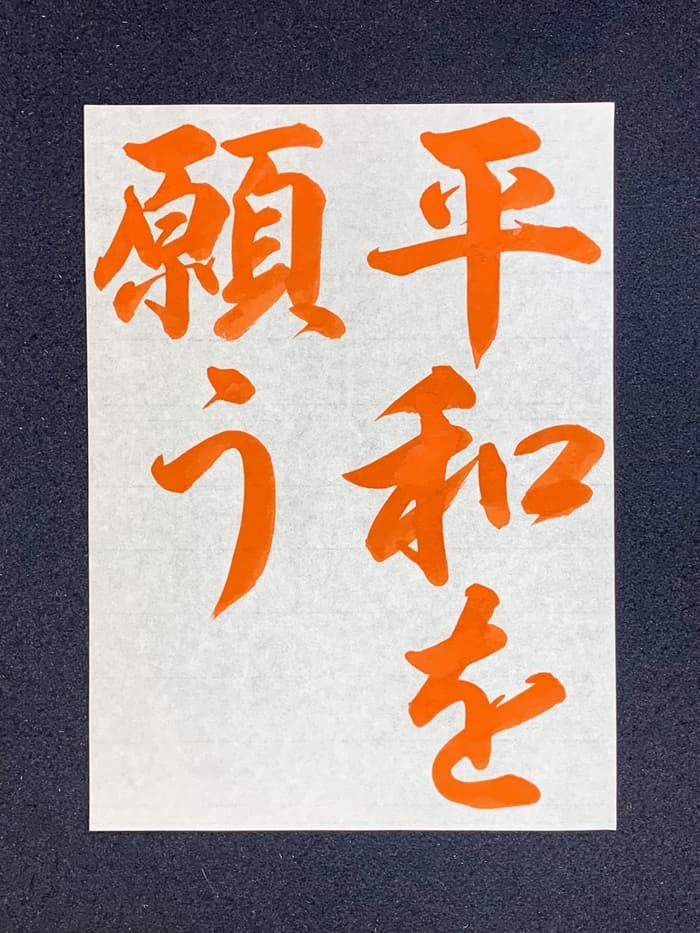 平和を
願う